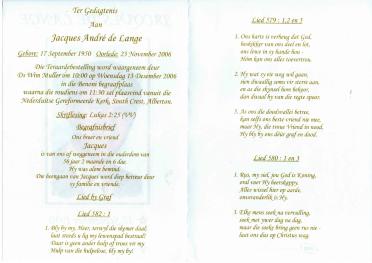 Ter Gedagtenis
Aan
Jacques André de Lange
Gebore: 17 September 1950 Oorlede: 23 November 2006
Die Teraardebestelling word waargeneem deur
Ds Wim Muller om 10:00 op Woensdag 13 Desember 2006
in die Benoni begraafplaas
waarna die roudiens om 11:30 sal plaasvind vanuit die
Nederduitse Gereformeerde Kerk, South Crest, Alberton.
Skriflesing: Lukas 2:25 (VV)
Begrafnisbrief
Ons broer en vriend
Jacques
is van ons af weggeneem in die ouderdom van
56 jaar 2 maande en 6 dae.
Hy was alom bemind.
Die heengaan van Jacques word diep betreur deur
sy familie en vriende.
Lied by Graf
Lied 582 : 1
1. Bly by my, Heer, terwyl die skymer daal,
laat steeds u lig my lewenspad bestraal!
Daar is geen ander hulp of troos vir my
Hulp van die hulpelose, bly my by!
Lied 579 : 1,2 en 3
1. Ons harte is verheug dat God,
beskikker van ons deel en lot,
ons lewe in sy hande hou -
Hom kan ons alles toevertrou.
2. Hy wat sy oë weg wil gaan,
sien dwaallig soms vir sterre aan,
en as die skynsel hom bekoor,
dan dwaal hy van die regte spoor.
3. As ons die doodsvallei betree,
kan selfs ons beste vriend nie mee,
maar Hy, die troue Vriend in nood,
Hy bly by ons deur graf en dood.
Lied 580 : 1 en 3
1. Rus, my siel, jou God is Koning,
oral waar Hy heerskappy.
Alles wissel hier op aarde,
onveranderlik is Hy.
3. Elke mens soek na vervulling,
soek met ywer dag na dag,
maar die soeke bring geen rus nie -
laat ons dus op Christus wag.